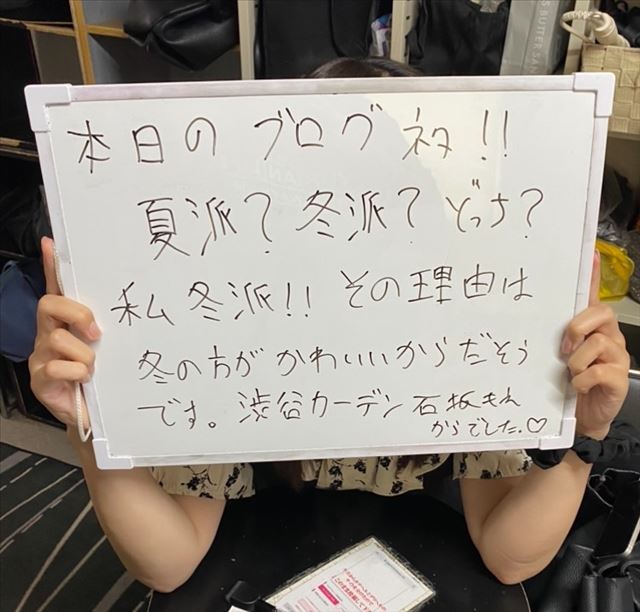 本日の ブログネタ!!
夏派? 冬派? どっち?
私 冬派!! その理由は
冬の方が かわいいからだそう
です。渋谷ガーデン 石坂もえ
からでした.♡